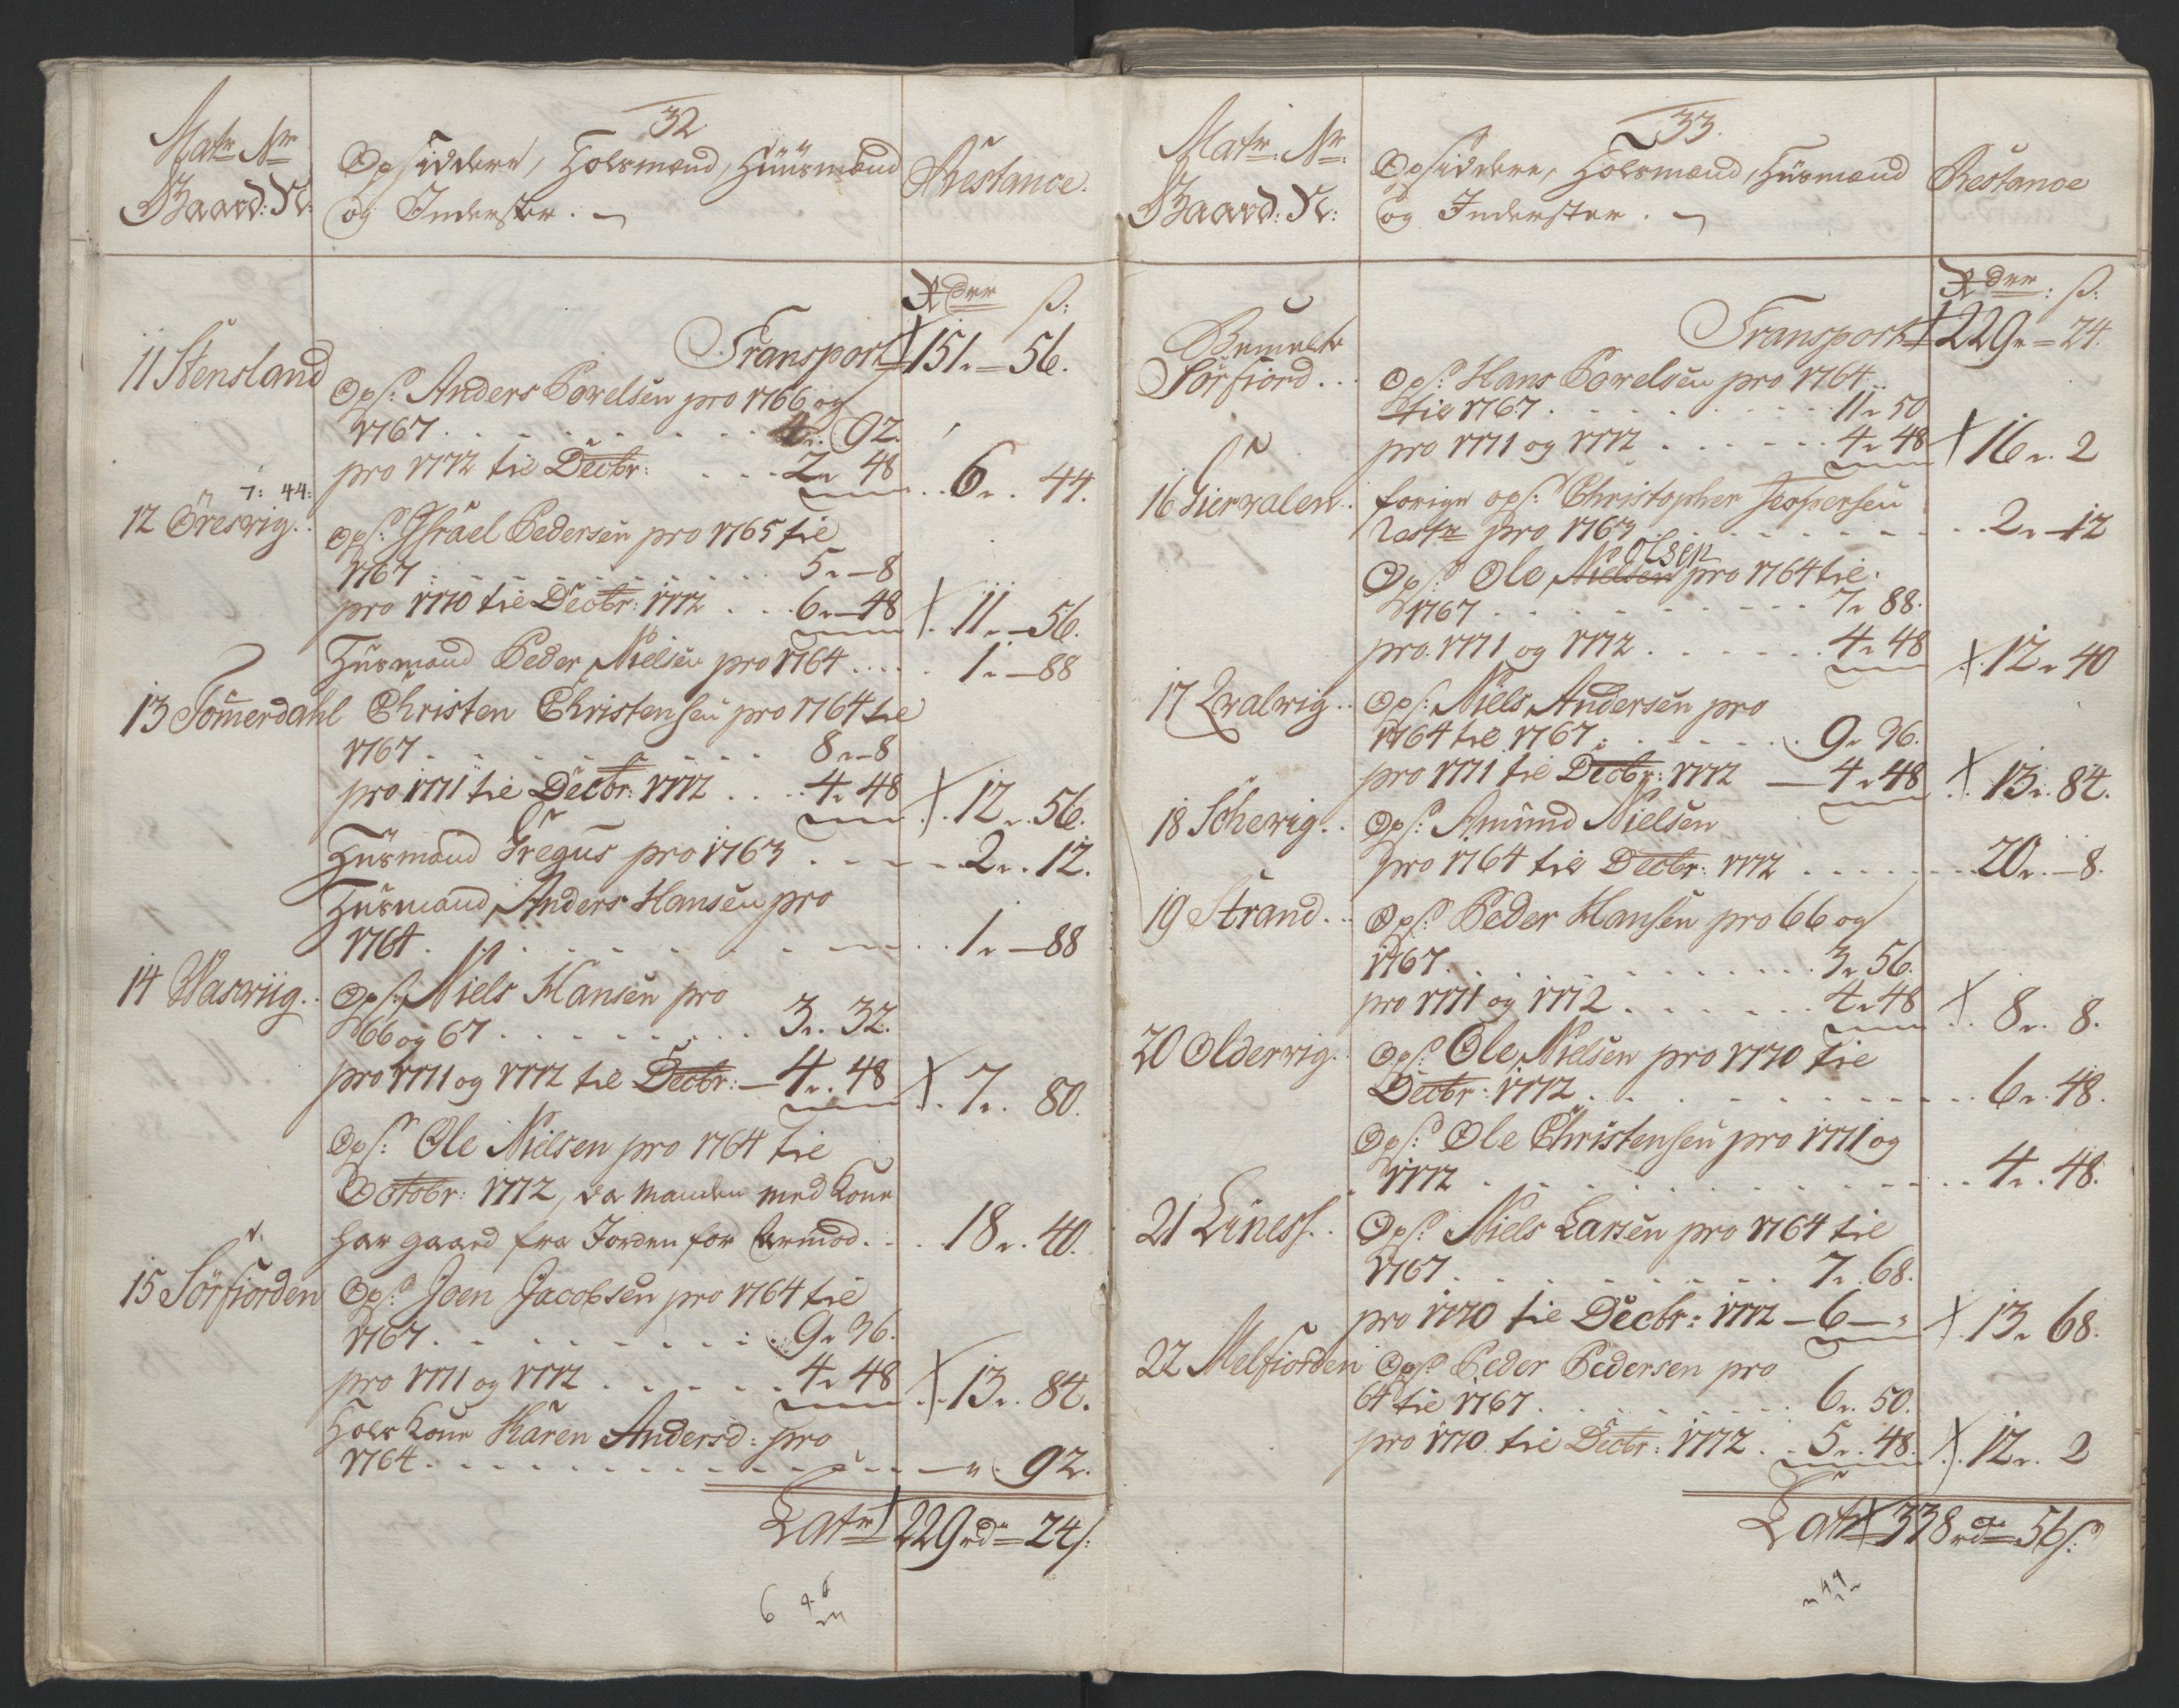 32
Matr: Nr
Gaard: N:
Opsiddere, Holsmænd, Huusmænd
og Inderster.
Restance.
Rdr ß:
Transport 151 „ 56.
11 Stensland
Ops: Anders Povelsen pro 1766 og
1767 . . . 4 „ 92.
pro 1772 til Decbr: . . . 2 „ 48 . . 6 „ 44.
7: 44:
12 Öresvig . .
Ops: Israel Pedersen pro 1765 til
1767 . . . 5 „ 8
pro 1770 til Decbr: 1772 . . . 6 „ 48 . 11 „ 56.
Huusmand Peder Nielsen pro 1764 . . . . 1 „ 88
13 Tömmerdahl Christen Christensen pro 1764 til
1767 . . . 8 „ 8
pro 1771 til Decbr: 1772 . . . 4 „ 48 . 12 „ 56.
Huusmand Gregus pro 1763 . . . . 2 „ 12.
Huusmand Anders Hansen pro
1764 . . . 1 „ 88
14 Wasviig . .
Ops: Niels Hansen pro
66 og 67 . . . 3 „ 32.
pro 1771 og 1772 til Decbr: 4 „ 48 . 7 „ 80.
Ops: Ole Nielsen pro 1764 til
Octobr: 1772, da Manden med Kone
har gaaed fra Jorden for Armod . . . 18 „ 40.
15 Sörfiorden Ops: Joen Jacobsen pro 1764 til
1767 . . . 9 „ 36.
pro 1771 og 1772 . . . 4 „ 48 . 13 „ 84.
Hols Kone Karen Andersd: pro
1764 . . . „ 92.
Latr 229 rd 24 ß:
6 4
33.
Matr: Nr:
Gaard: N:
Opsiddere, Holsmænd, Huusmænd
og Inderster.
Restance
Rdr: ß:
Transport 229 „ 24.
Bemelte
Sörfiord . . .
Ops: Hans Povelsen pro 1764
til 1767 . . . 11 „ 50
pro 1771 og 1772 . . . 4 „ 48 16 „ 2
16 Kiervalen . . forige ops: Christopher Jespersen
rest pro 1763 . . . 2 „ 12
Ops: Ole Nielsen Olsen pro 1764 til
1767 . . . 7 „ 88.
pro 1771 og 1772 . . . 4 „ 48 . 12 „ 40
17 Qvalvig . . Ops: Niels Andersen pro
1764 til 1767 . . . 9 „ 36.
pro 1771 til Decbr: 1772 4 „ 48 . 13 „ 84.
18 Schevig . . Ops: Amund Nielsen
pro 1764 til Decbr: 1772 . . . 20 „ 8.
19 Strand . . Ops: Peder Hansen pro 66 og
1767 . . . 3 „ 56.
pro 1771 og 1772 . . . 4 „ 48 . 8 „ 8.
20 Oldervig . . Ops: Ole Nielsen pro 1770 til
Decbr: 1772 . . . 6 „ 48.
Ops: Ole Christensen pro 1771 og
1772 . . . 4 „ 48.
21 Lÿness . . Ops: Niels Larsen pro 1764 til
1767 . . . 7 „ 68.
pro 1770 til Decbr: 1772 – 6 – „ . 13 „ 68.
22 Melfiorden Ops: Peder Pedersen pro
64 til 1767 . . . 6 „ 50.
pro 1770 til Decbr: 1772 . . 5 „ 48. . 12 „ 2
Latr 338 rd 56 ß:
44